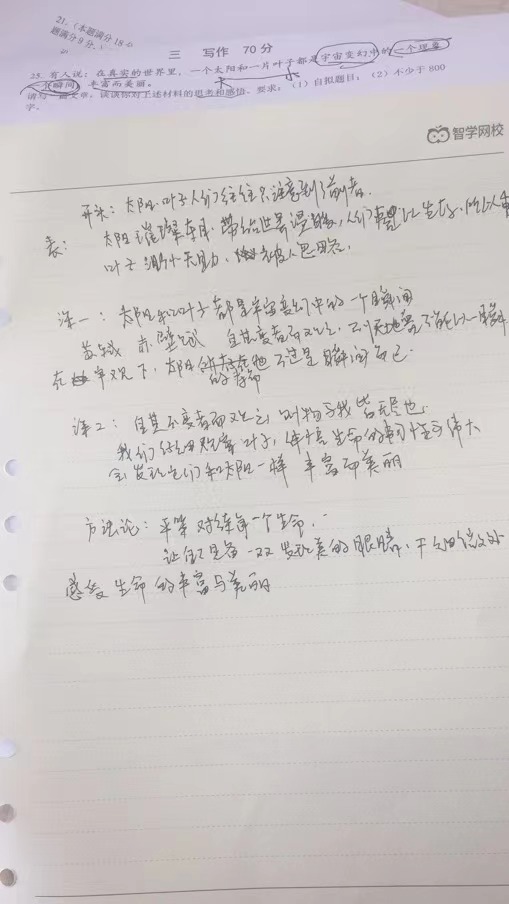 21.（本题满分 18 分
题满分 9 分
三 写作 70 分
25. 有人说：在真实的世界里，一个太阳和一片叶子都是宇宙变幻中的一个现象
一个瞬间，丰富而美丽。
请写一篇文章，谈谈你对上述材料的思考和感悟。要求：（1）自拟题目；（2）不少于 800
字。
智学网校
开头：太阳 叶子 人们往往只注意到了前者.
表： 太阳 璀璨 带给世界温暖，人们 以生存
叶子
深一：太阳和叶子都是宇宙变幻中的一个瞬间
苏轼 赤壁赋 自其变者而观之，则天地曾不能以一瞬
在 宏观下，太阳 也不过是瞬间而已.
深2：自其不变者而观之，则物与我皆无尽也.
我们 叶子， 生命的 伟大
会发现它们和太阳一样 丰富而美丽
方法论：平等对待每一个生命.
让自己具备一双发现美的眼睛，于细微处
感受 生命的丰富与美丽